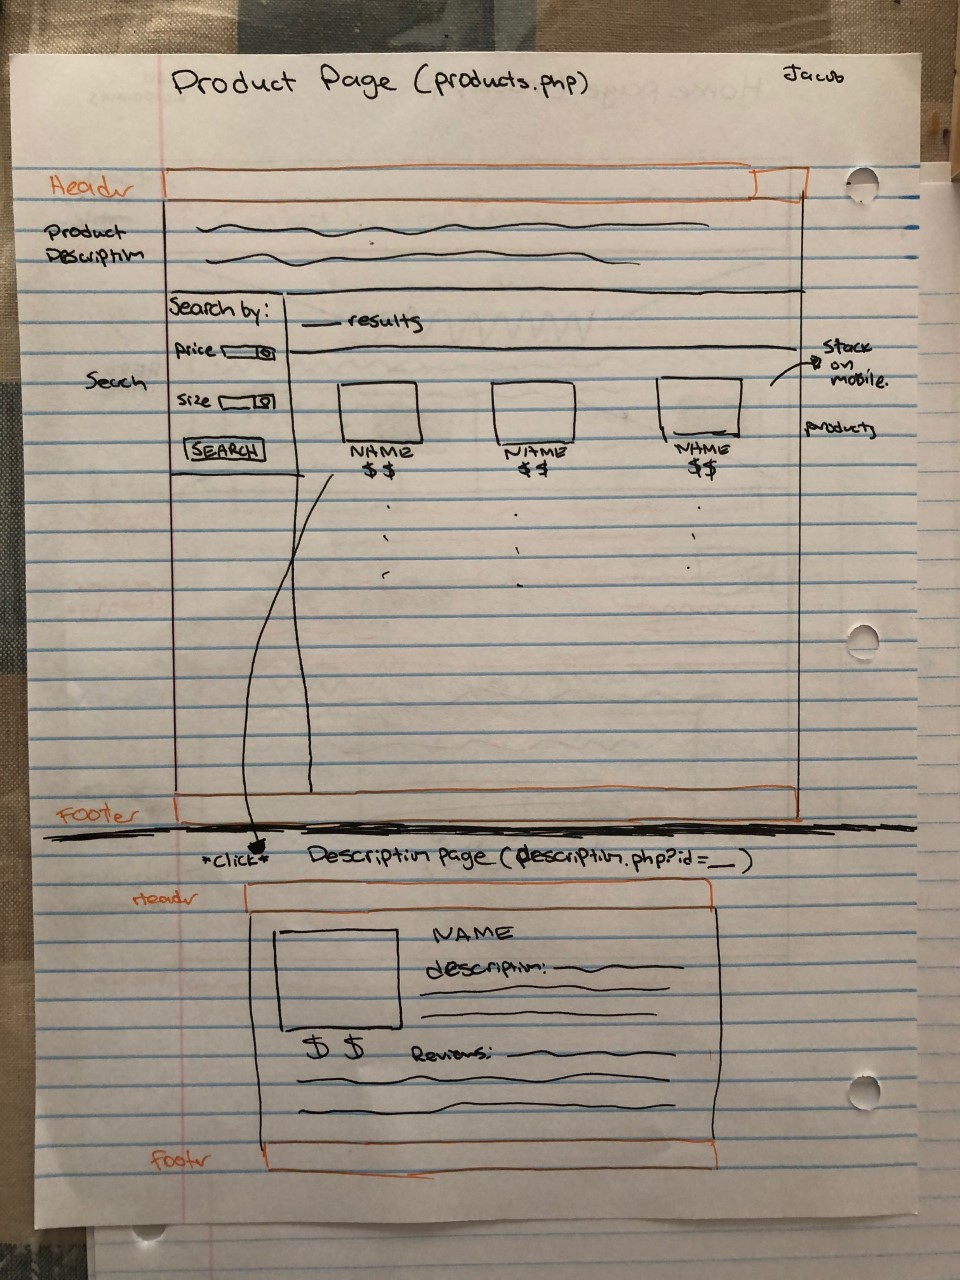 Product Page (products.php)
Jacob
Header
Product
Description
Search by:
results
price
Stack
on
mobile.
Seach
size
products
SEARCH
NAME NAME NAME
$$ $$ $$
Footer
*click* Description page (description.php?id=__)
Header
NAME
description:
$ $
Reviews:
Footer